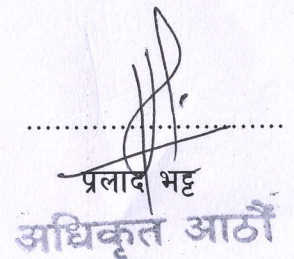 प्रलाद भट्ट
अधिकृत आठौँ